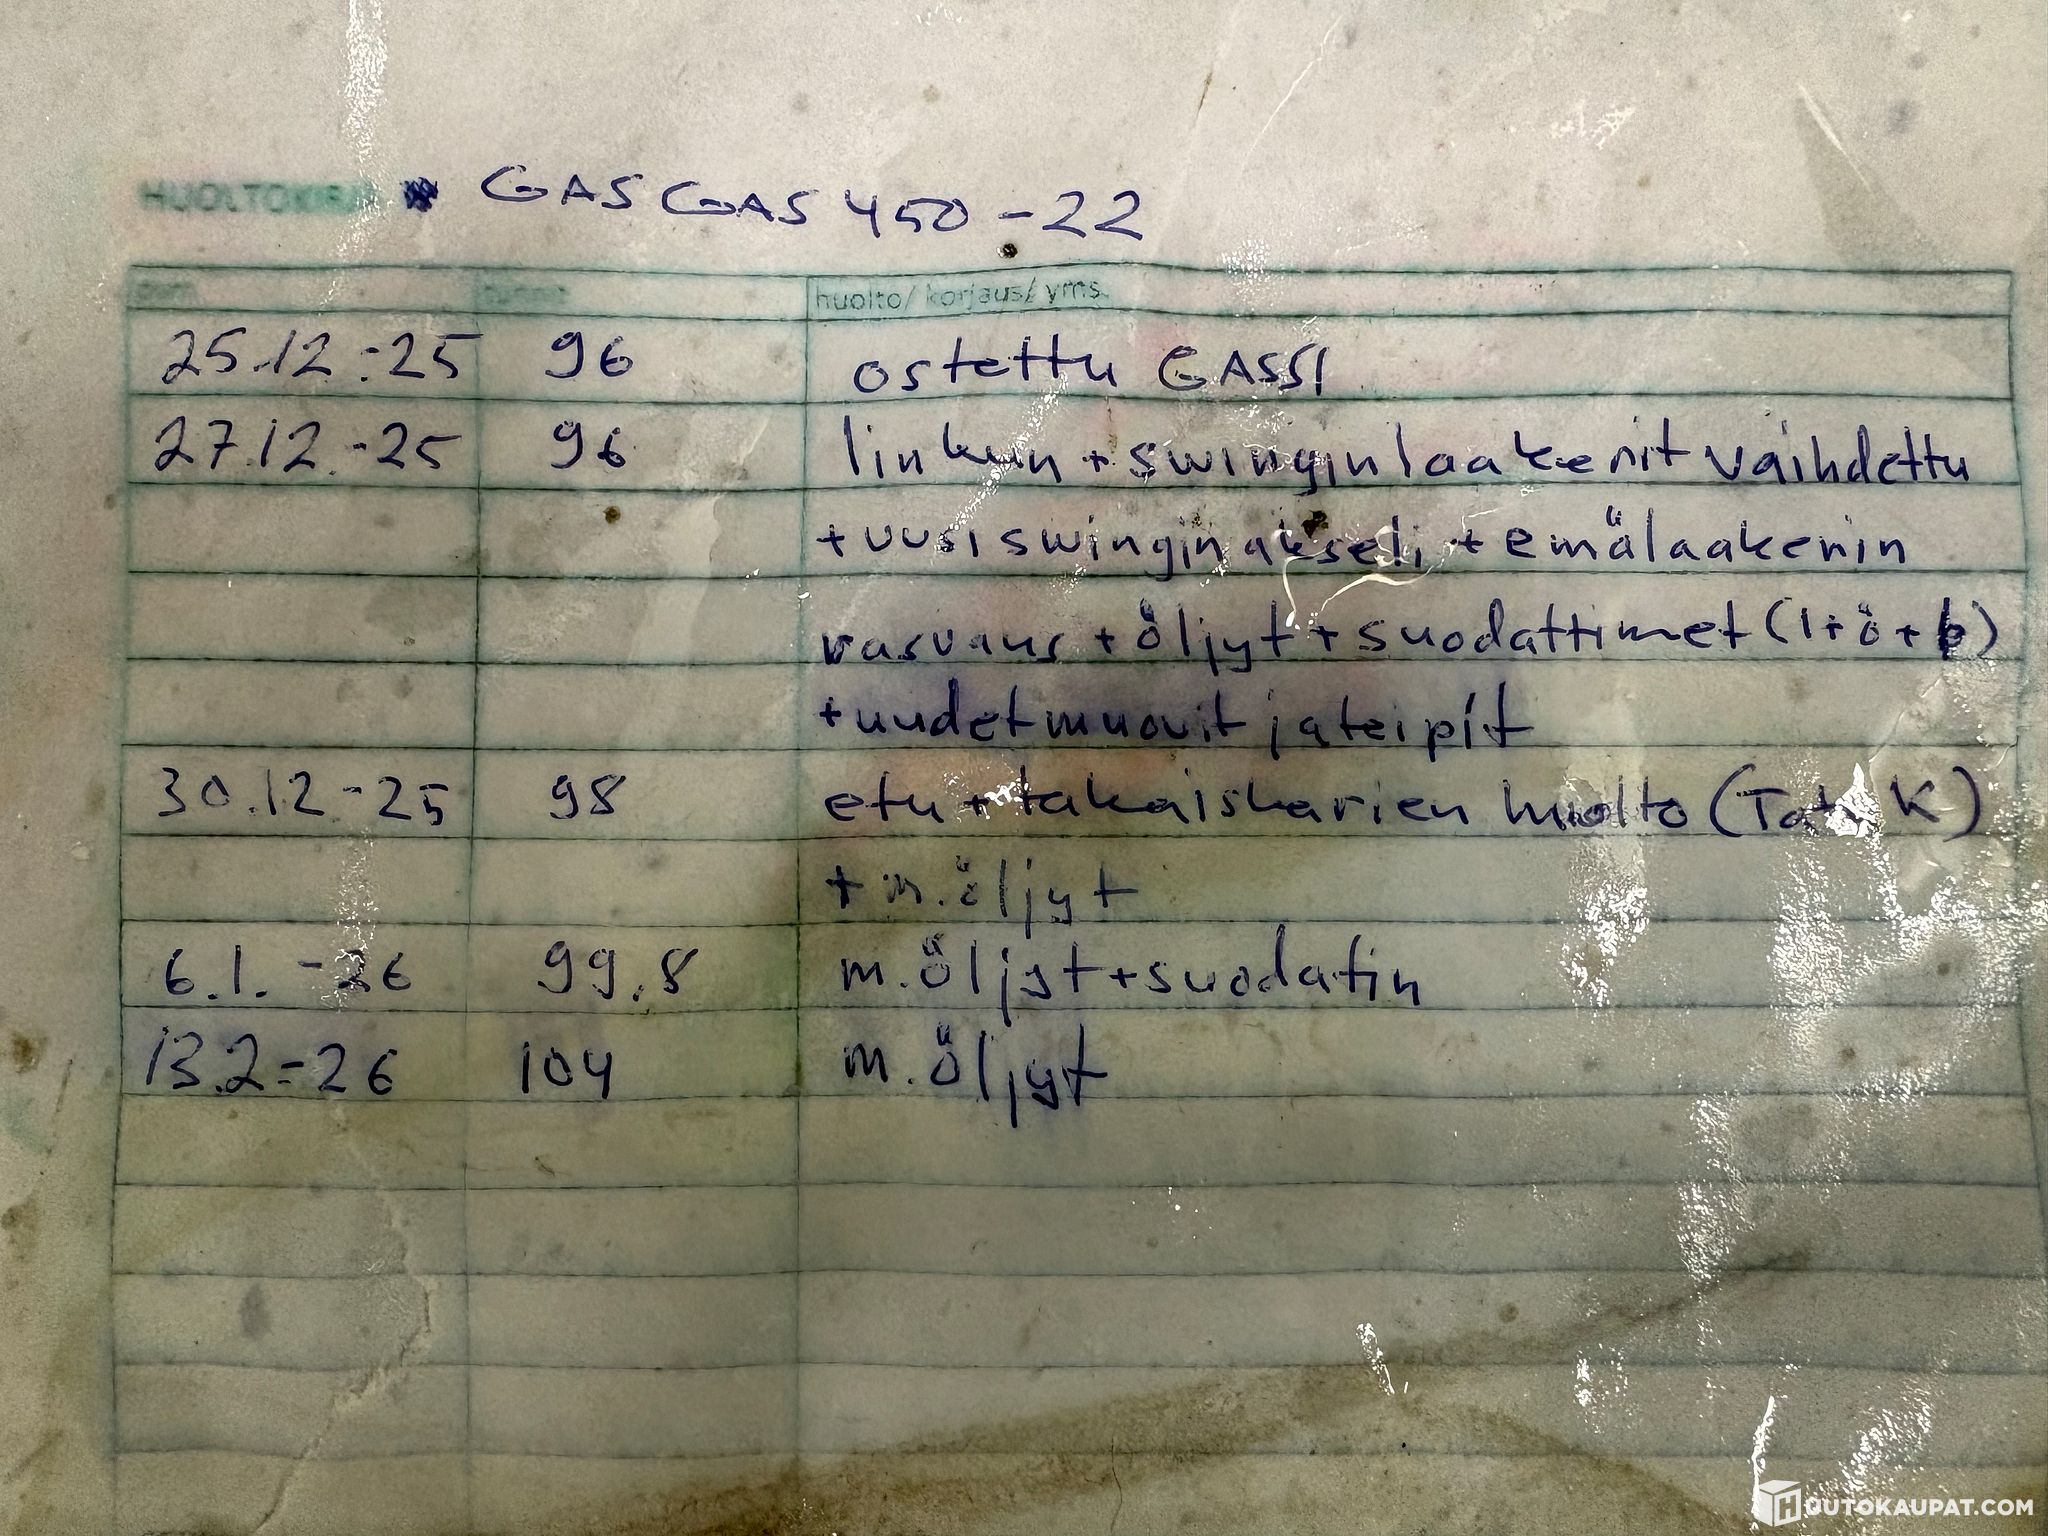 HUOLTOKIRJA GASGAS 450 -22
pvm tunnit huolto/ korjaus/ yms.
25.12.-25 96 ostettu GASSI
27.12.-25 96 linkun + swingin laakerit vaihdettu
+ uusi swingin akseli + emälaakerin
rasvaus + öljyt + suodattimet (i+ö+b)
+ uudet muovit ja teipit
30.12-25 98 etu + takaiskarien huolto ( K)
+ m.öljyt
6.1.-26 99.8 m.öljyt + suodatin
13.2-26 104 m.öljyt
HUUTOKAUPAT.COM